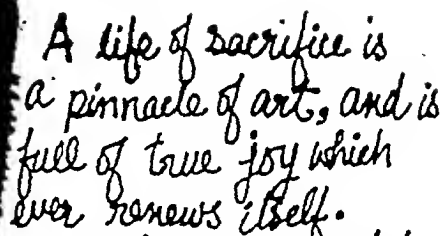 A life of sacrifice is
a pinnacle of art, and is
full of true joy which
ever renews itself.